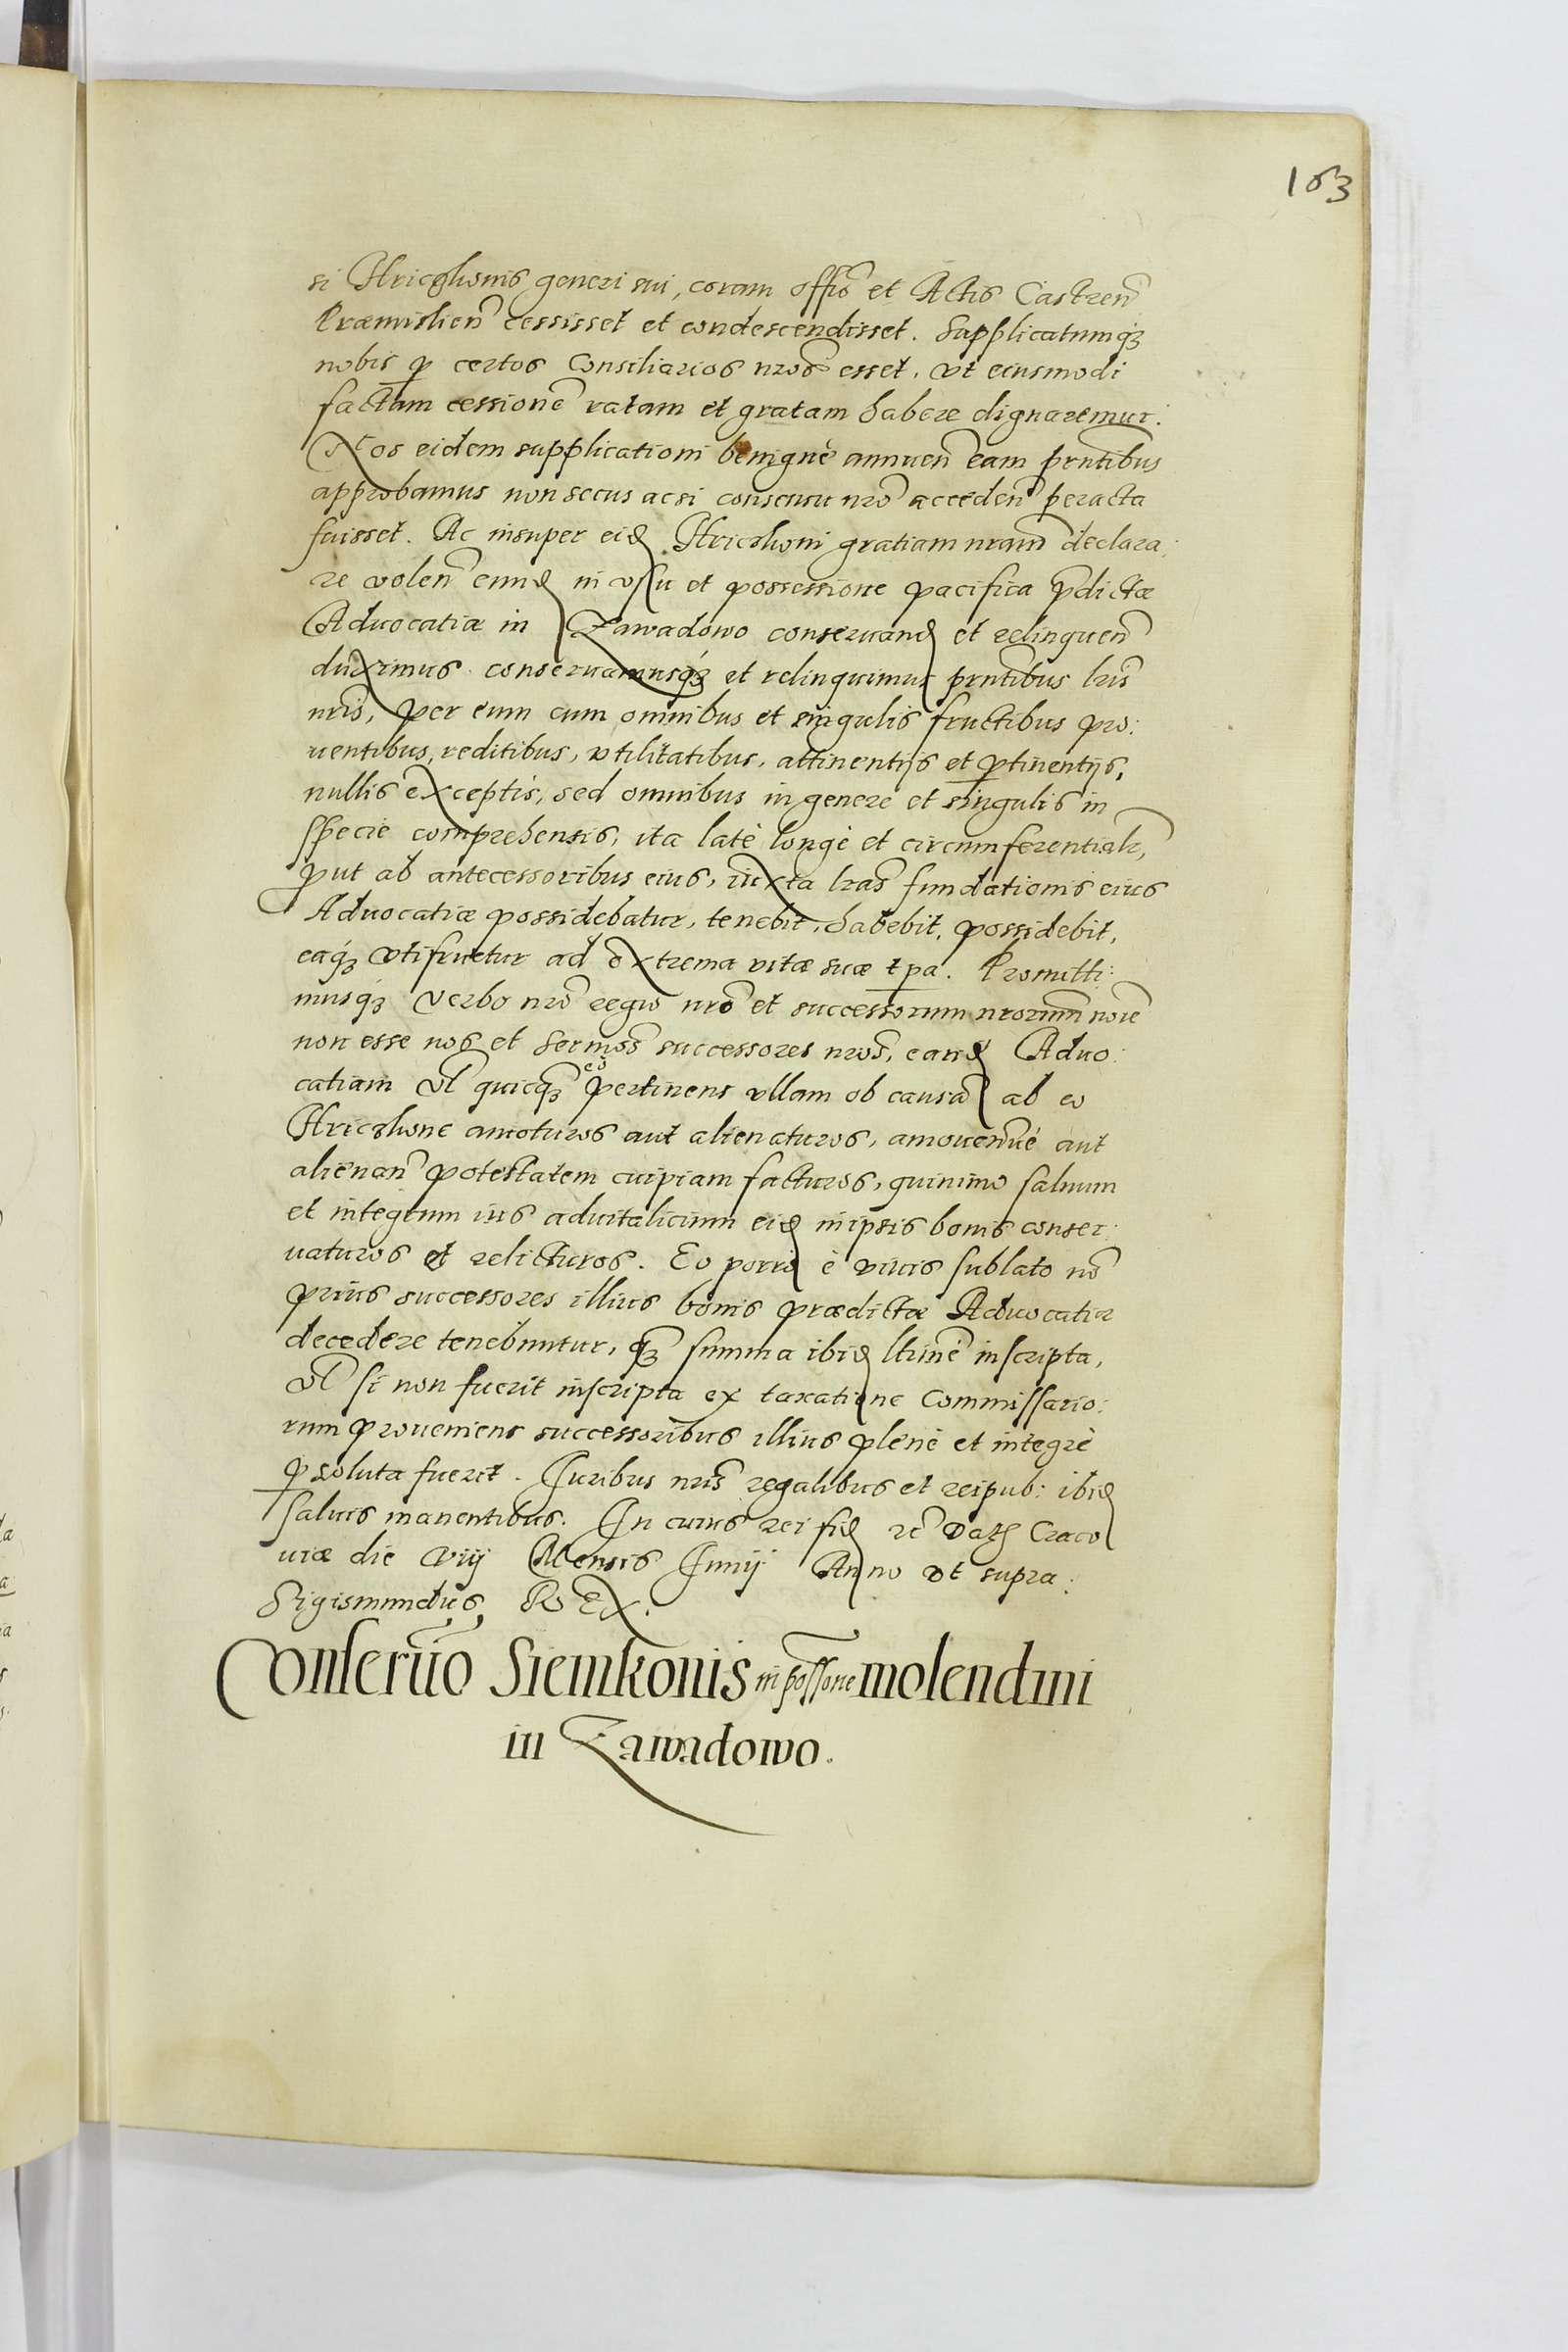 163
si Hriczhonis generi sui, coram offõ et Actis Castreñ
Præmislieñ cessisset et condescendisset. Supplicatumq₃
nobis ꝑ certos Consiliarios nr̃os esset, vt eiusmodi
factam cessionẽ ratam et gratam habere dignaremur.
Nos eidem supplicationi benignè annueñ eam pr̃ntibus
approbamus non secus ac si consensu nr̃o accedeñ peracta
fuisset. Ac insuper eid Hriczhoni gratiam nr̃am declara:
re voleñ eund in vsu et possessione pacifica p̃dictæ
Aduocatiæ in Zawadowo conseruand et relinqueñ
duximus conseruamusq́₃ et relinquimus pr̃ntibus lr̃is
nr̃is, per eum cum omnibus et singulis fructibus pro:
uentibus, reditibus, vtilitatibus, attinentijs et ꝑtinentijs,
nullis exceptis, sed omnibus in genere et singulis in
specie comprehensis, ita latè longè et circumferentialr̃,
ꝓut ab antecessoribus eius, iuxta lr̃as fundationis eius
Aduocatiæ possidebatur, tenebit, habebit, possidebit,
eaq́₃ vtifruetur ad extrema vitæ suæ tp̃a. Promitti:
musq́₃ verbo nr̃o regio nr̃o et successorum nr̃orum noĩe
non esse nos et Sermos̃ successores nr̃os, eand Aduo:
catiam vl̃ quicq₃̃ eõ pertinens vllam ob causã ab eo
Hriczhone amoturos aut alienaturos, amouenuè aut
alienañ potestatem cuipiam facturos, quinimo saluum
et integrum ius aduitalicium eid in ipsis bonis conser:
uaturos et relicturos. Eo porro è viuis sublato nõ
prius successores illius bonis prædictæ Aduocatiæ
decedere tenebuntur, q₃̃ summa ibid ltimè inscripta,
vl̃ si non fuerit inscripta ex taxatione Commissario:
rum proueniens successoribus illius plenè et integrè
ꝑsoluta fuerit. Iuribus nr̃is regalibus et reipub: ibid
saluis manentibus. In cuius rei fid rc̃ Datȝ Craco
uiæ die viij Mensis Iunij Anno vt supra:
Sigismundus Rex.
Conseruõ Siemkonis in possone molendini
in Zawadowo.